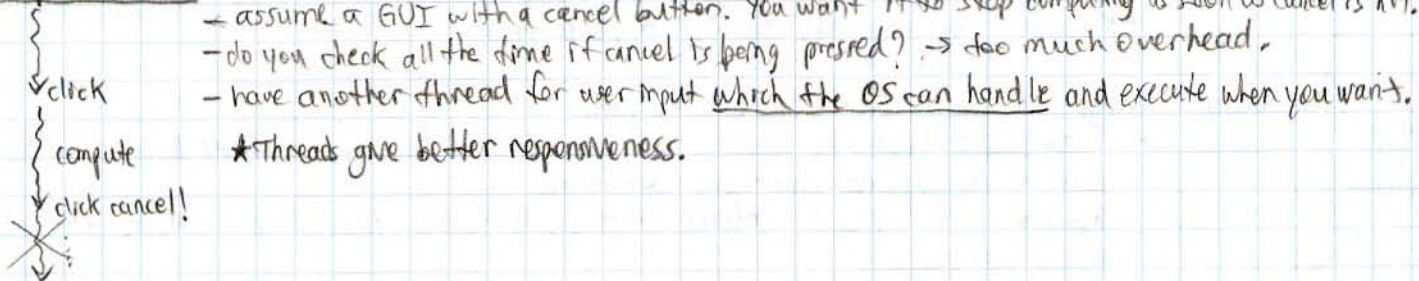 - assume a GUI with a cancel button. You want it to stop computing as soon as cancel is hit.
- do you check all the time if cancel is being pressed? → too much overhead.
click - have another thread for user input which the OS can handle and execute when you want.
compute ★ Threads give better responsiveness.
click cancel!